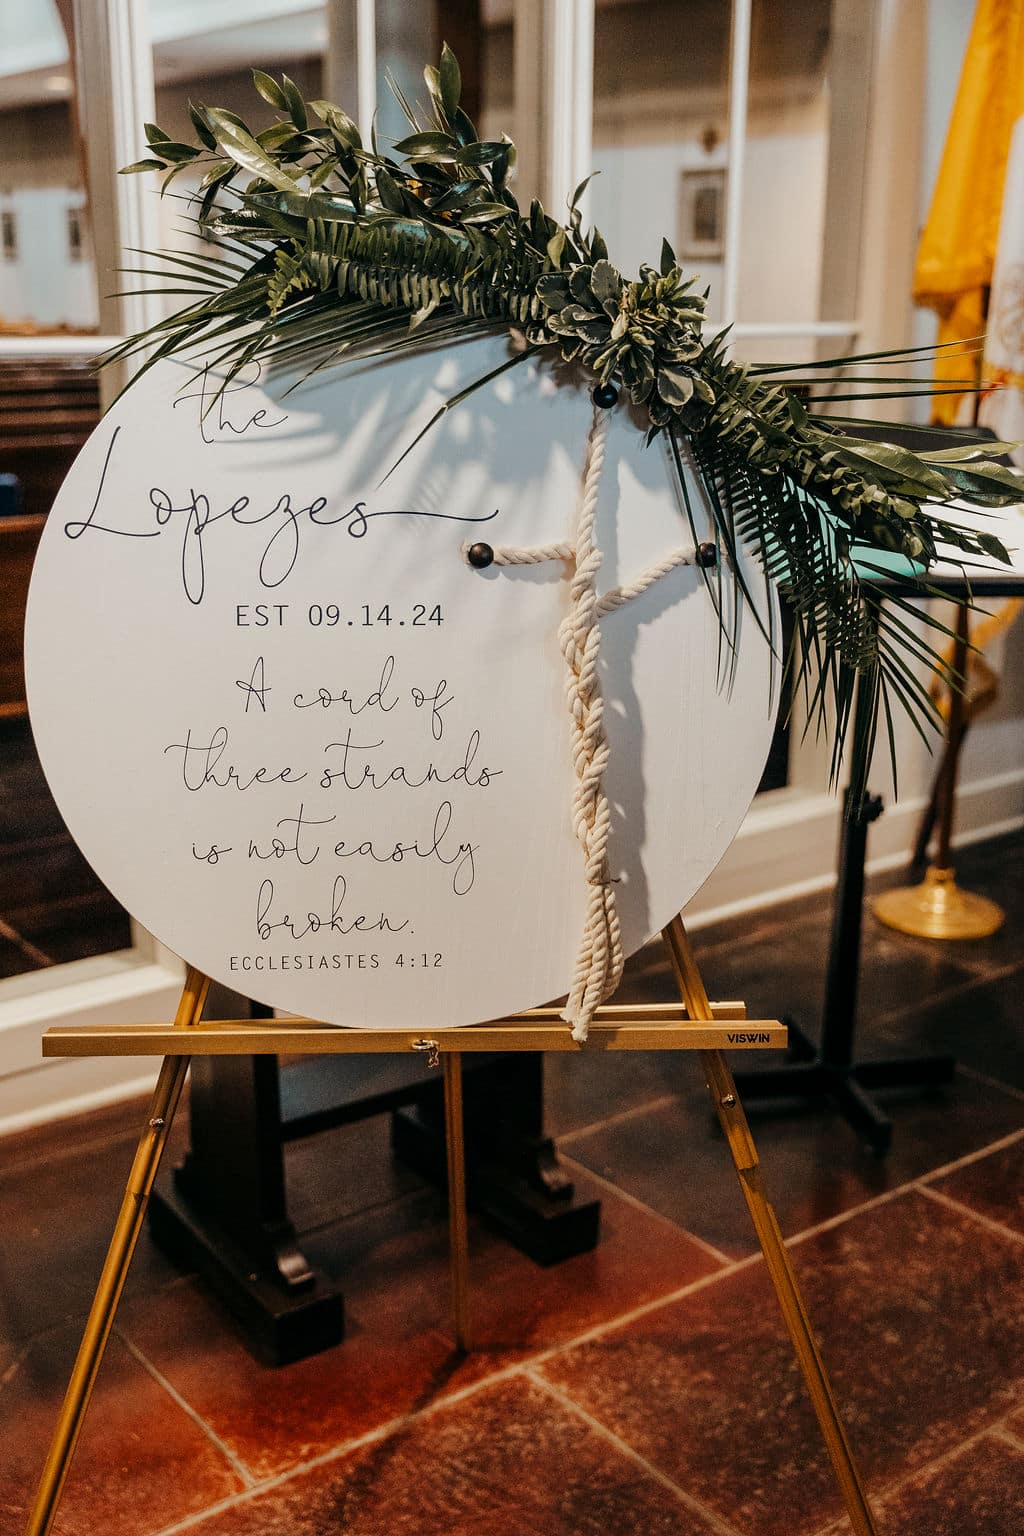 the
Lopezes
EST 09.14.24
A cord of
three strands
is not easily
broken.
ECCLESIASTES 4:12
VISWIN